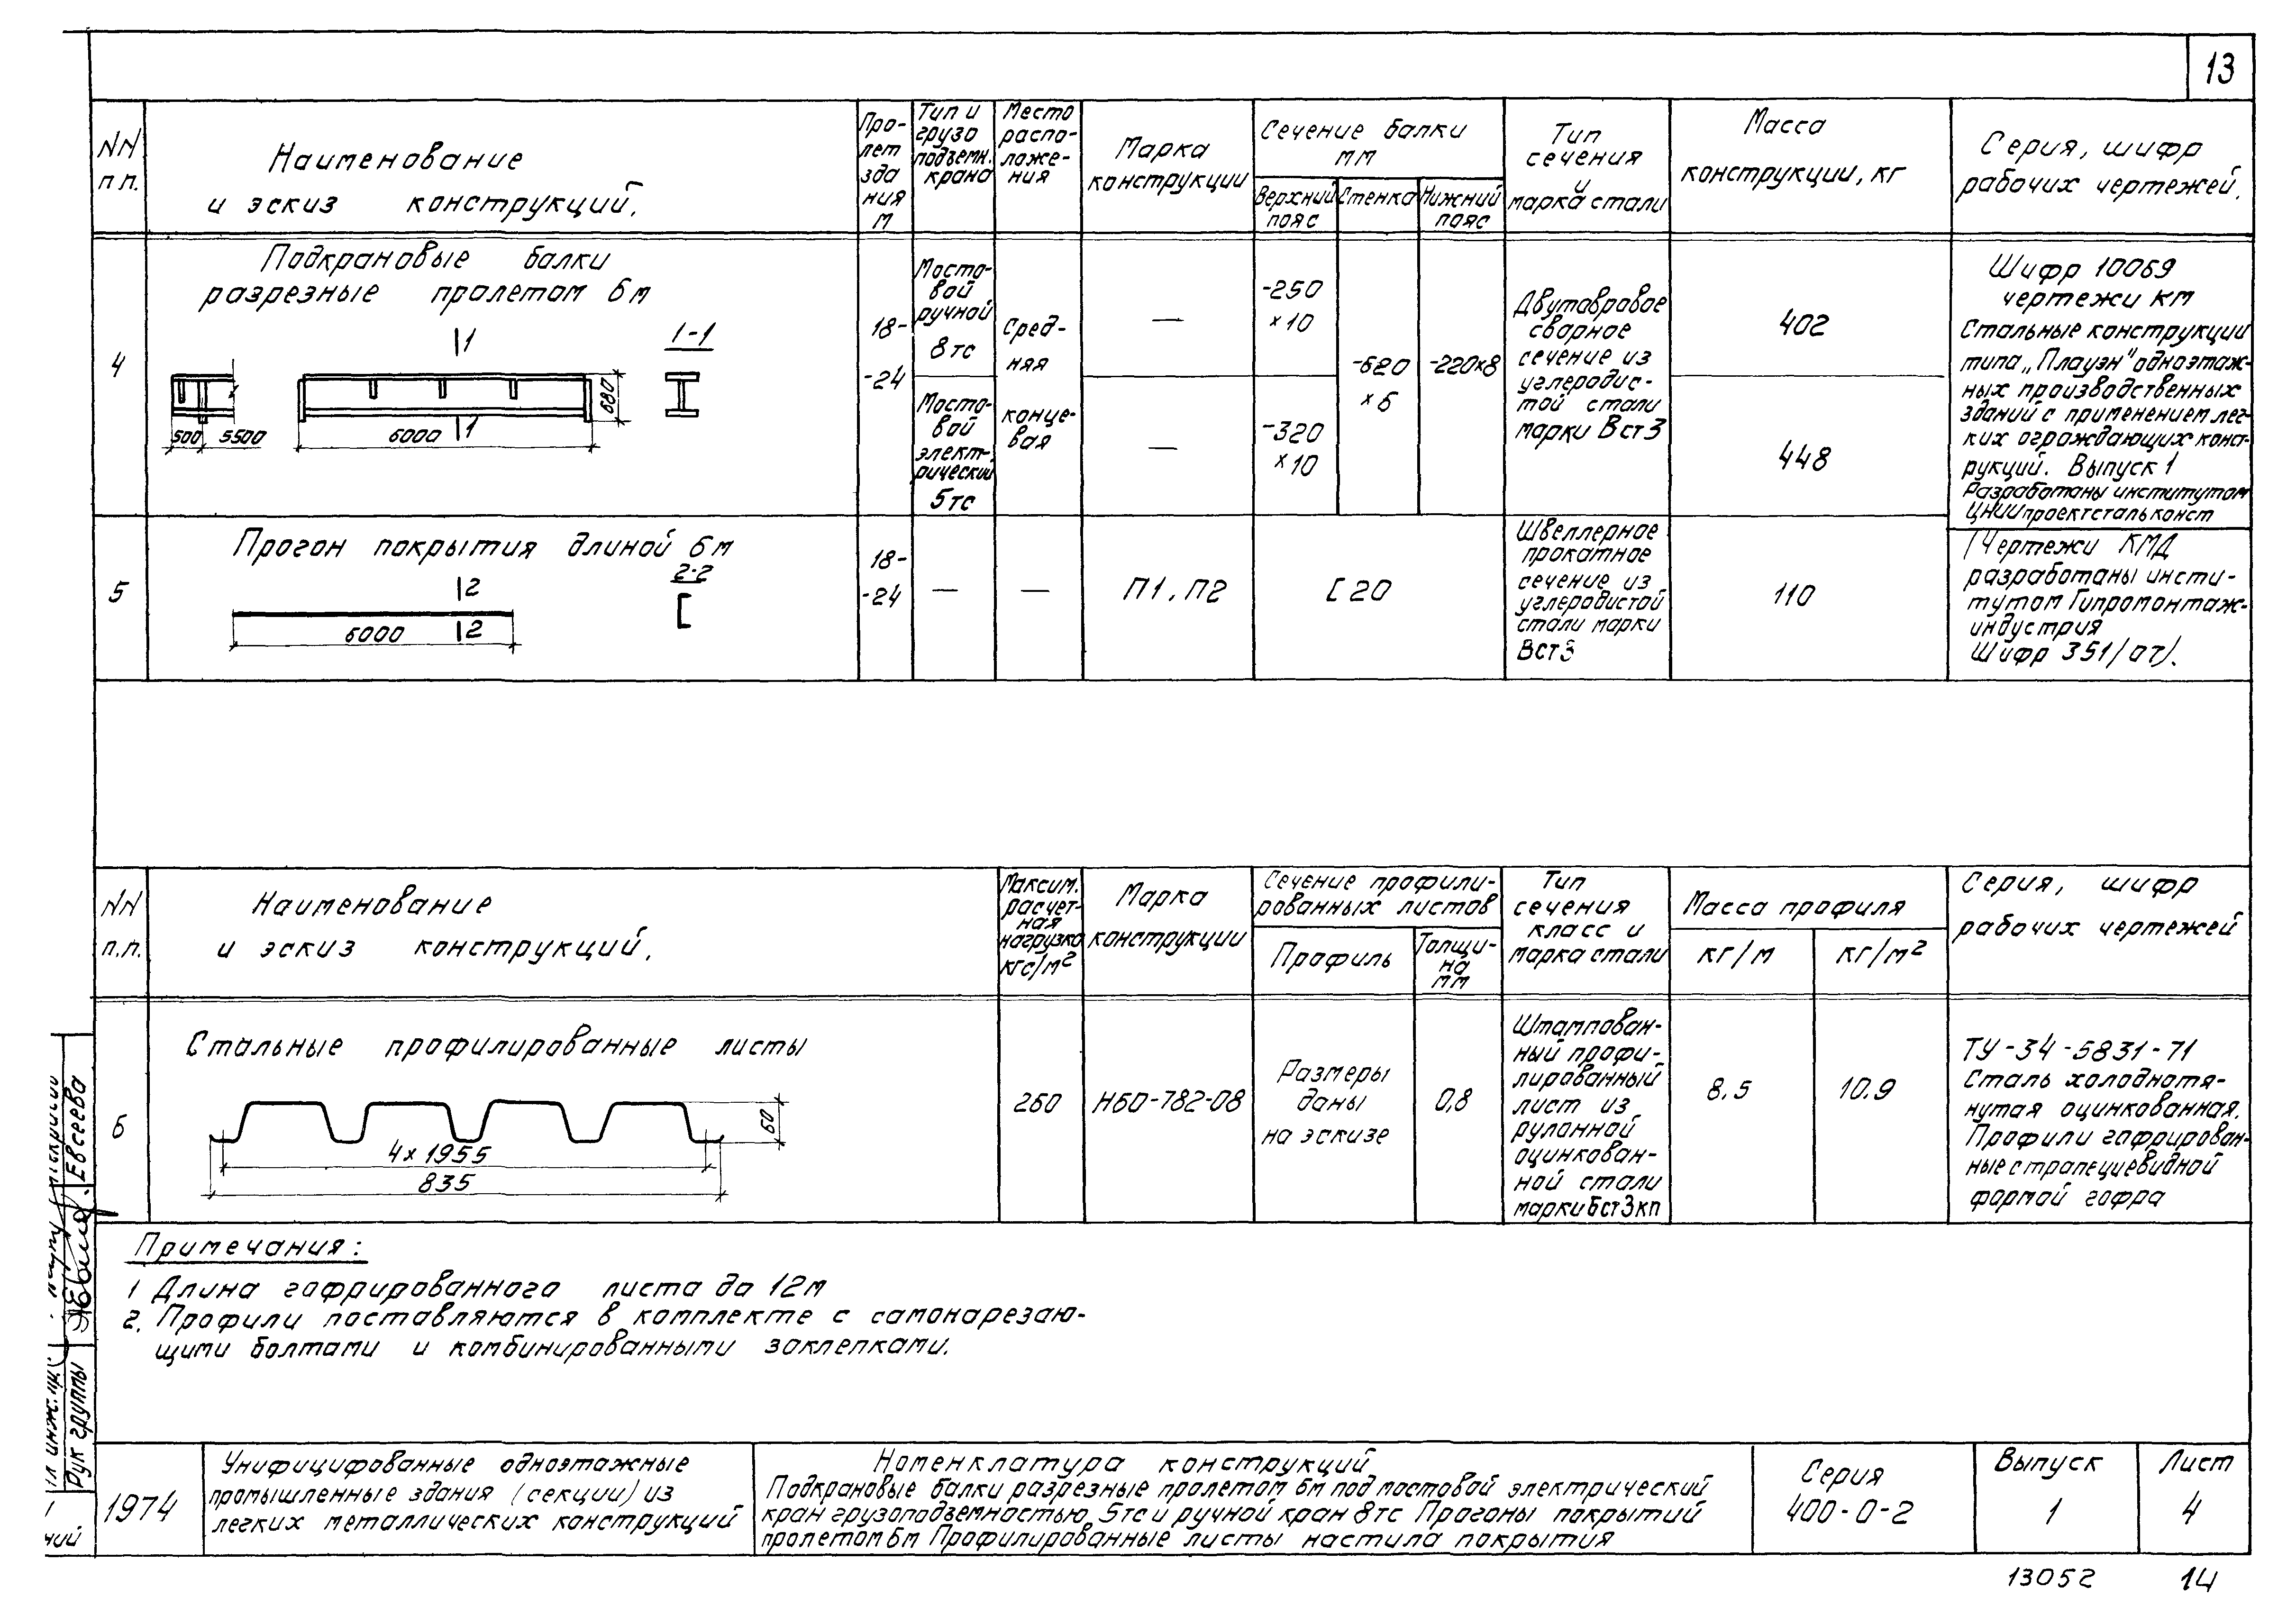 13
NN
п п.
Наименование
и эскиз конструкций.
Про-
лет
зда
ния
м
Тип и
грузо
подъемн.
крана
Место
распо-
ложе-
ния
Марка
конструкции
Сечение балки
мм
Верхний
пояс
Стенка
Нижний
пояс
Тип
сечения
и
марка стали
Масса
конструкции, кг
Серия, шифр
рабочих чертежей.
4
Подкрановые балки
разрезные пролетом 6м
1
1-1
500
5500
6000
1
680
18-
-24
Мосто-
вой
ручной
8тс
Мосто-
вой
элект-
рический
5тс
Сред-
няя
конце-
вая
—
—
-250
×10
-320
×10
-620
×6
-220×8
Двутавровое
сварное
сечение из
углеродис-
той стали
марки Вст3
402
448
Шифр 10069
чертежи КМ
Стальные конструкции
типа „Плауэн" одноэтаж-
ных производственных
зданий с применением лег-
ких ограждающих конст-
рукций. Выпуск 1
Разработаны институтом
ЦНИИпроектстальконст
5
Прогон покрытия длиной 6м
2
2-2
6000
2
18-
-24
—
—
П1, П2
[ 20
Швеллерное
прокатное
сечение из
углеродистой
стали марки
Вст3
110
(Чертежи КМД
разработаны инсти-
тутом Гипромонтаж-
индустрия
Шифр 351/от).
NN
п.п.
Наименование
и эскиз конструкций.
Максим.
расчет-
ная
нагрузка
кгс/м²
Марка
конструкции
Сечение профили-
рованных листов
Профиль
Толщи-
на
мм
Тип
сечения
класс и
марка стали
Масса профиля
кг/м
кг/м²
Серия, шифр
рабочих чертежей
6
Стальные профилированные листы
60
4×1955
835
260
Н60-782-08
Размеры
даны
на эскизе
0,8
Штампован-
ный профи-
лированный
лист из
рулонной
оцинкован-
ной стали
марки Бст3кп
8,5
10,9
ТУ-34-5831-71
Сталь холоднотя-
нутая оцинкованная.
Профили гофрирован-
ные с трапециевидной
формой гофра
Примечания:
1 Длина гофрированного листа до 12м
2. Профили поставляются в комплекте с самонарезаю-
щими болтами и комбинированными заклепками.
Рук группы
Евсеева
1974
Унифицифованные одноэтажные
промышленные здания (секции) из
легких металлических конструкций
Номенклатура конструкций
Подкрановые балки разрезные пролетом 6м под мостовой электрический
кран грузоподъемностью 5тс и ручной кран 8тс Прогоны покрытий
пролетом 6м Профилированные листы настила покрытия
Серия
400-0-2
Выпуск
1
Лист
4
13052
14